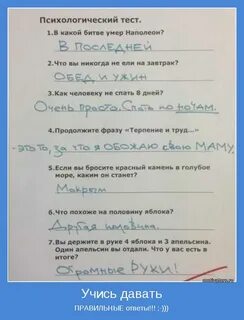 Психологический тест.
1.В какой битве умер Наполеон?
В ПОСЛЕДНЕЙ
2.Что вы никогда не ели на завтрак?
ОБЕД И УЖИН
3.Как человеку не спать 8 дней?
Очень просто. Спать по ночам.
4.Продолжите фразу «Терпение и труд...»
-это то, за что я ОБОЖАЮ свою МАМУ
5.Если вы бросите красный камень в голубое
море, каким он станет?
Мокрым
6.Что похоже на половину яблока?
Другая половина.
7.Вы держите в руке 4 яблока и 3 апельсина.
Один апельсин вы отдали. Что у вас есть в
итоге?
Огромные РУКИ!
Учись давать
ПРАВИЛЬНЫЕ ответы!!! : )))